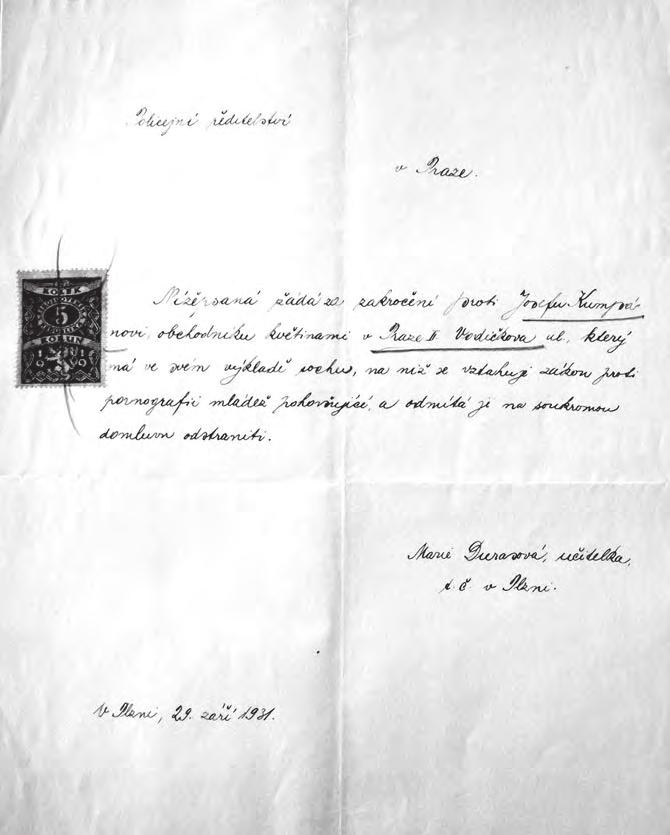 Policejní ředitelství
v Praze.
Nížepsaná žádá za zakročení proti Josefu Kumpá-
novi, obchodníku květinami v Praze II Vodičkova ul., který
má ve svém výkladě sochu, na niž se vztahuje zákon proti
pornografii mládež pohoršující, a odmítá ji na soukromou
domluvu odstraniti.
Marie Durasová, učitelka,
t. č. v Plzni.
V Plzni, 29. září 1931.
KOLEK
5
KORUN
1919